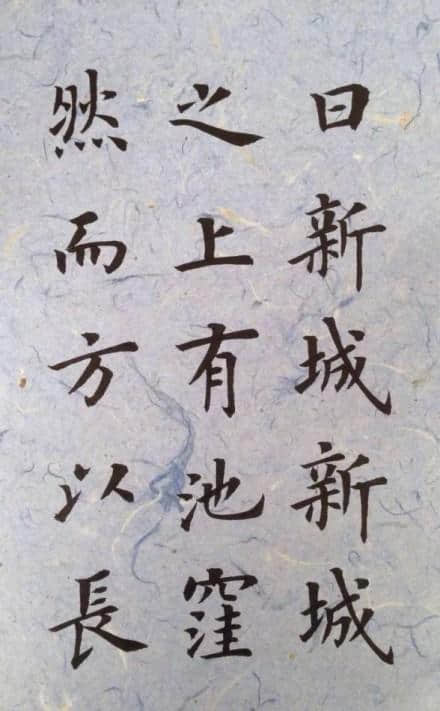 曰新城新城
之上有池窪
然而方以長